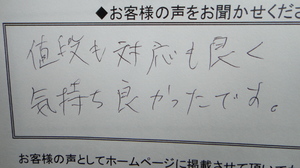 ◆お客様の声をお聞かせくださ
値段も対応も良く
気持ち良かったです。
お客様の声としてホームページに掲載させて頂いても